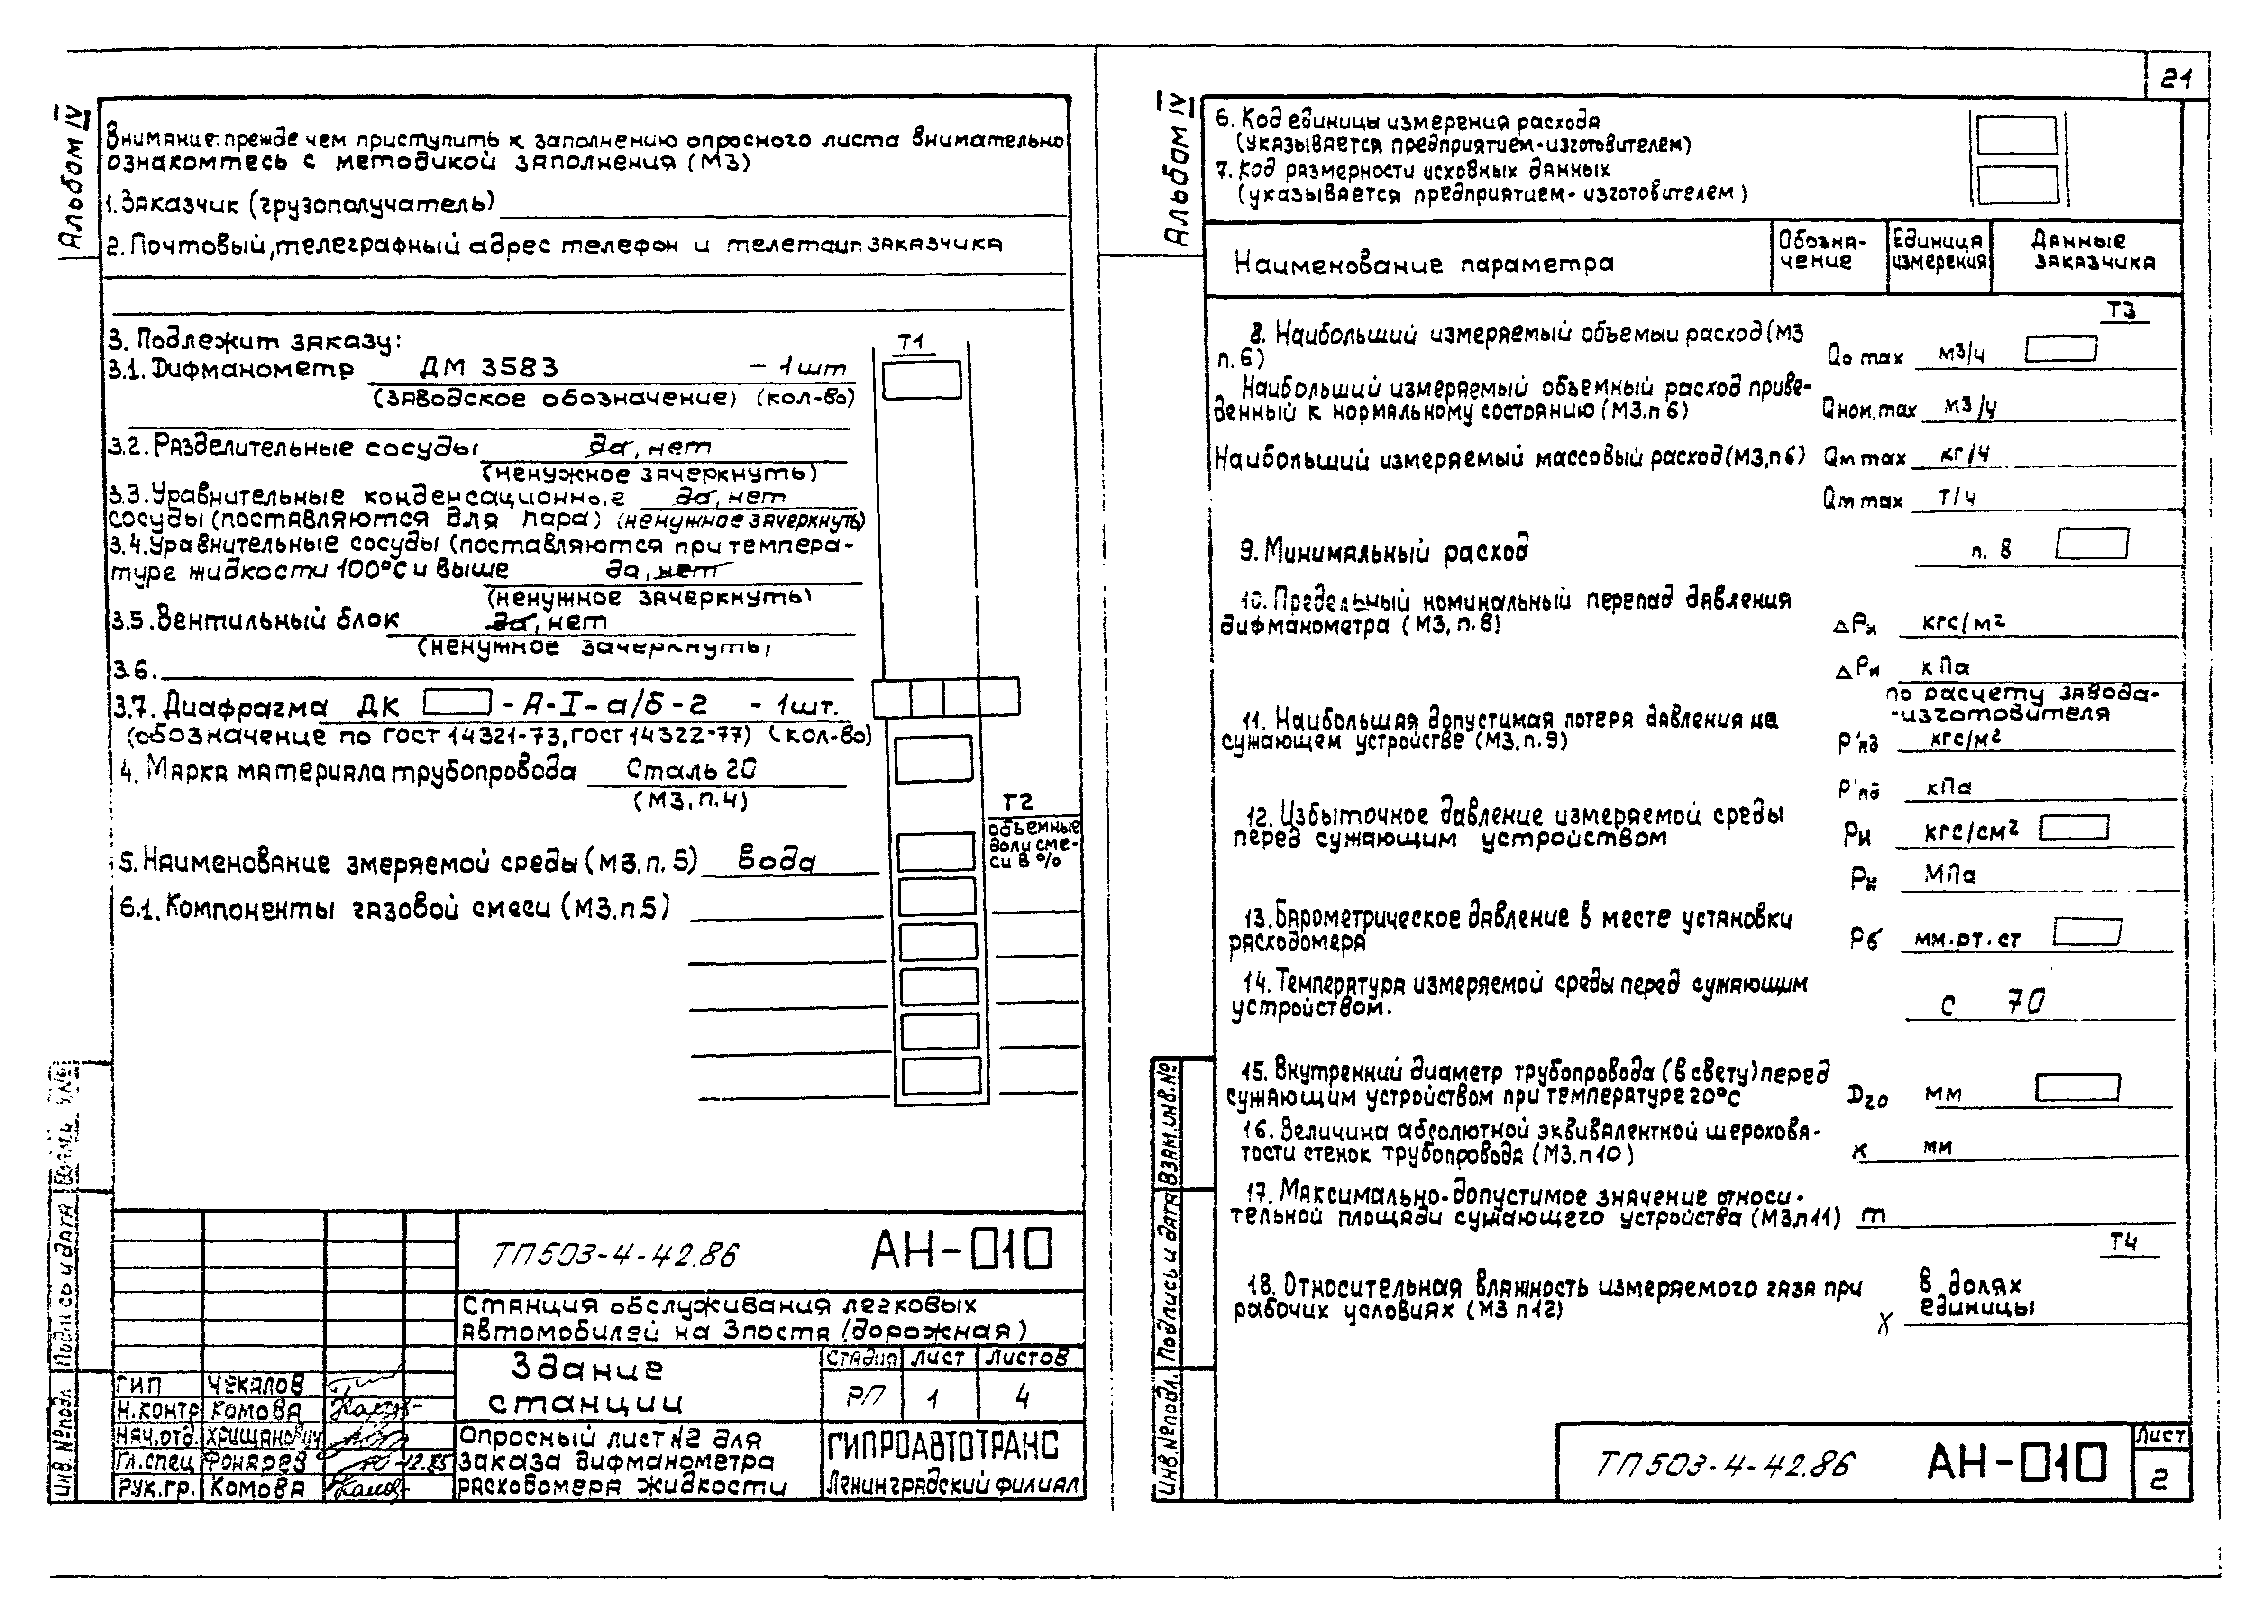 21
Альбом IV
Внимание: прежде чем приступить к заполнению опросного листа внимательно
ознакомтесь с методикой заполнения (МЗ)
1. Заказчик (грузополучатель)
2. Почтовый, телеграфный адрес телефон и телетайп заказчика
3. Подлежит заказу:
Т1
3.1. Дифманометр ДМ 3583 – 1 шт
(заводское обозначение) (кол-во)
3.2. Разделительные сосуды да, нет
(ненужное зачеркнуть)
3.3. Уравнительные конденсационные да, нет
сосуды (поставляются для пара) (ненужное зачеркнуть)
3.4. Уравнительные сосуды (поставляются при темпера-
туре жидкости 100°С и выше да, нет
(ненужное зачеркнуть)
3.5. Вентильный блок да, нет
(ненужное зачеркнуть)
3.6.
3.7. Диафрагма ДК - А-I-а/б-2 - 1шт.
(обозначение по ГОСТ 14321-73, ГОСТ 14322-77) (кол-во)
4. Марка материала трубопровода Сталь 20
(МЗ, п.4)
Т2
объемные
доли сме-
си в %
5. Наименование змеряемой среды (МЗ, п. 5) Вода
6.1. Компоненты газовой смеси (МЗ.п5)
ТП503-4-42.86 АН-010
Станция обслуживания легковых
автомобилей на 3поста (дорожная)
Здание
станции
Стадия Лист Листов
РП 1 4
Опросный лист №2 для
заказа дифманометра
расходомера жидкости
ГИПРОАВТОТРАНС
Ленинградский филиал
ГИП Чекалов
Н.контр Комова
Нач.отд. Хрищанович
Гл.спец Фонарев 12.85
Рук.гр. Комова
Инв.№подл. Подпись и дата Взам.инв.№
Альбом IV
6. Код единицы измерения расхода
(указывается предприятием-изготовителем)
7. Код размерности исходных данных
(указывается предприятием-изготовителем)
Наименование параметра
Обозна-
чение
Единица
измерения
Данные
заказчика
Т3
8. Наибольший измеряемый объемый расход (МЗ
п.6) Qо max м3/ч
Наибольший измеряемый объемный расход приве-
денный к нормальному состоянию (МЗ.п 6) Qном,max м3/ч
Наибольший измеряемый массовый расход (МЗ,п6) Qм max кг/ч
Qм max т/ч
9. Минимальный расход п. 8
10. Предельный номинальный перепад давления
дифманометра (МЗ, п.8) ΔРн кгс/м2
ΔРн кПа
по расчету завода-
-изготовителя
11. Наибольшая допустимая потеря давления на
сужающем устройстве (МЗ, п.9) Р'пд кгс/м2
Р'пд кПа
12. Избыточное давление измеряемой среды
перед сужающим устройством Ри кгс/см2
Ри МПа
13. Барометрическое давление в месте установки
расходомера Рб мм.рт.ст
14. Температура измеряемой среды перед сужающим
устройством. С 70
15. Внутренний диаметр трубопровода (в свету) перед
сужающим устройством при температуре 20°С D20 мм
16. Величина абсолютной эквивалентной шерохова-
тости стенок трубопровода (МЗ.п10) к мм
17. Максимально-допустимое значение относи-
тельной площади сужающего устройства (МЗ,п11) m
Т4
18. Относительная влажность измеряемого газа при
рабочих условиях (МЗ п12) χ
в долях
единицы
ТП503-4-42.86 АН-010
Лист
2
Инв.№подл. Подпись и дата Взам.инв.№